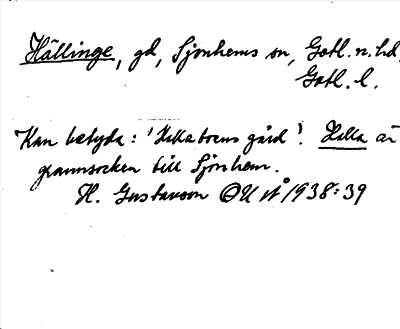 Hällinge, gd, Sjonhems sn, Gotl. n. hd,
Gotl. l.
Kan betyda: 'Hallabornas gård'. Halla är
grannsocken till Sjonhem.
H. Gustavson OUÅ 1938:39